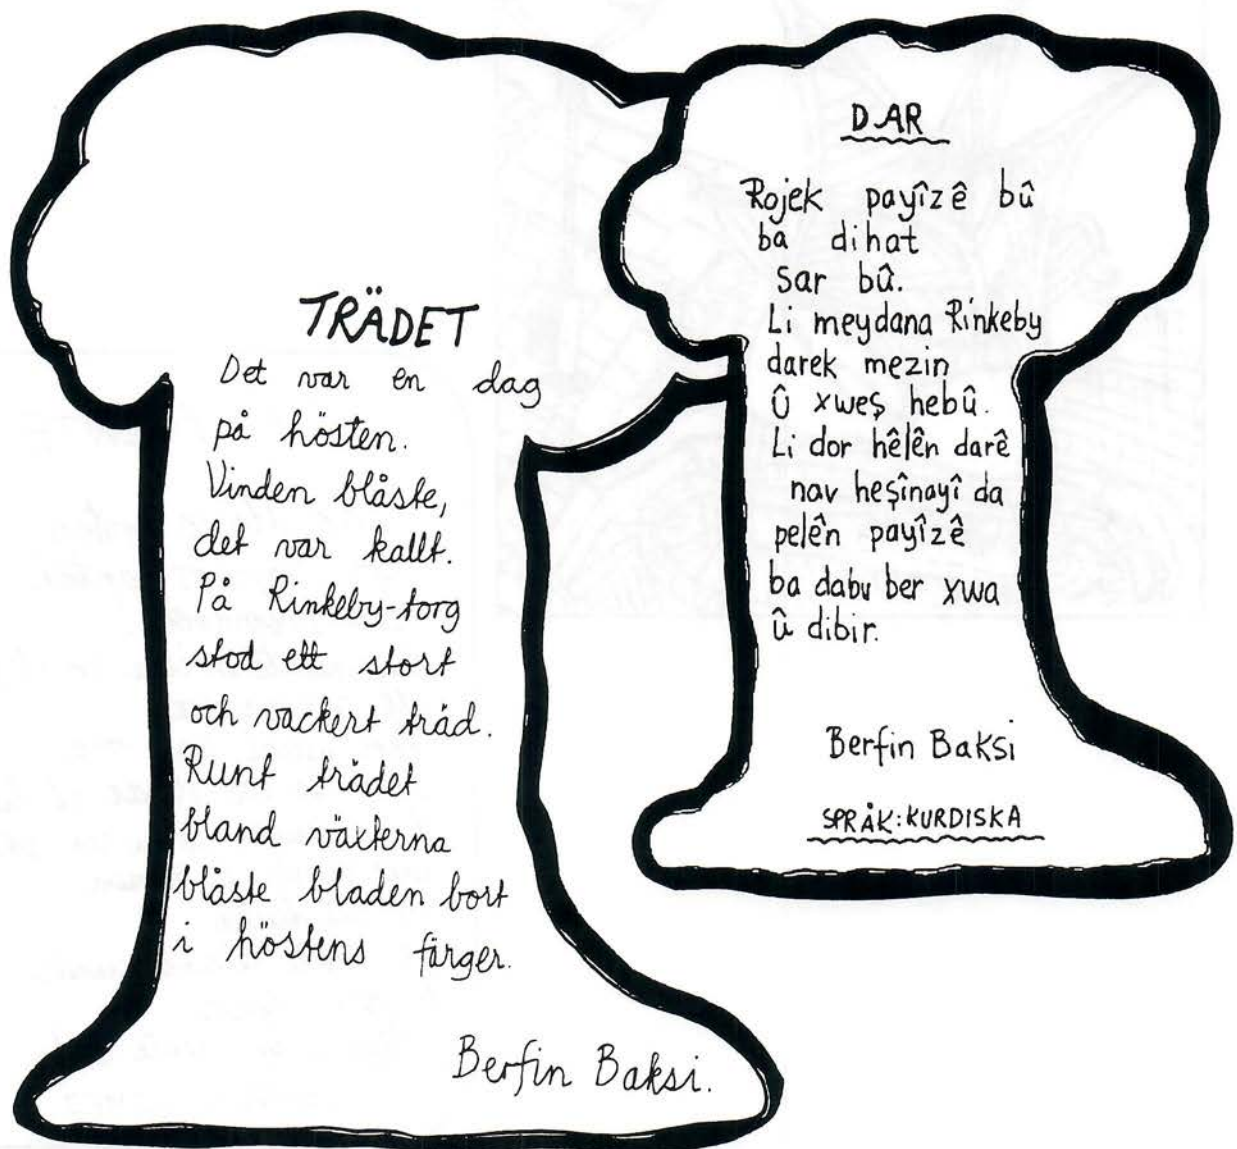 TRÄDET
Det var en dag
på hösten.
Vinden blåste,
det var kallt.
På Rinkeby-torg
stod ett stort
och vackert träd.
Runt trädet
bland växterna
blåste bladen bort
i höstens färger.
Berfin Baksi.
DAR
Rojek payîzê bû
ba dihat
sar bû.
Li meydana Rinkeby
darek mezin
û xweş hebû.
Li dor hêlên darê
nav heşînayî da
pelên payîzê
ba dabu ber xwa
û dibir.
Berfin Baksi
SPRÅK: KURDISKA